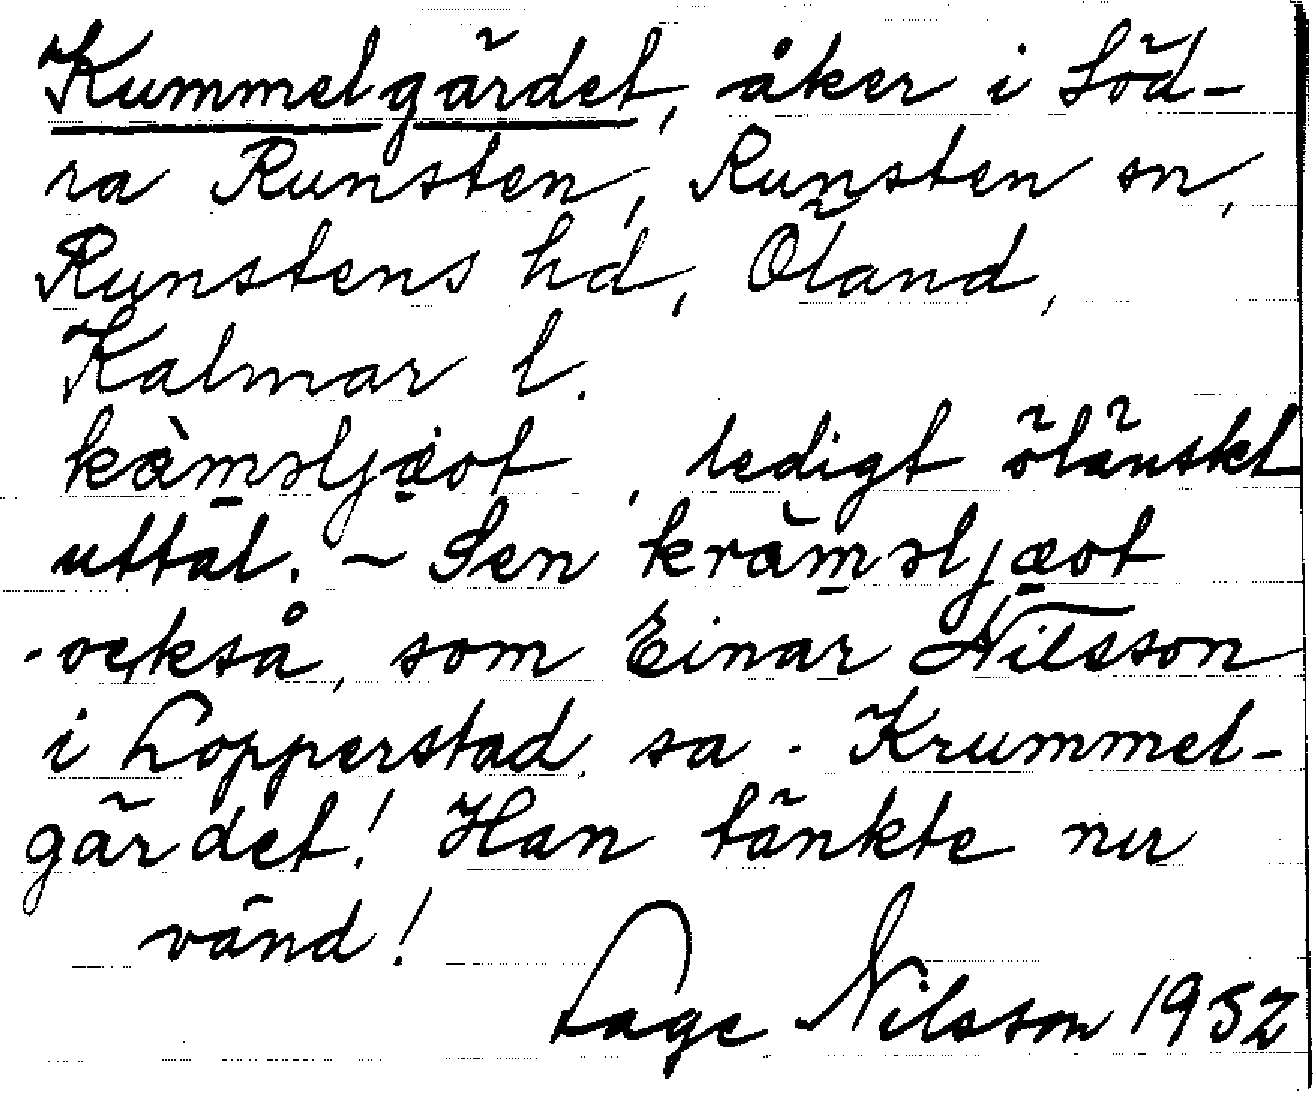 Kummelgärdet, åker i Söd-
ra Runsten, Runsten sn,
Runstens hd, Öland,
Kalmar l.
, ledigt öländskt
uttal. ~ Sen
också, som Einar Nilsson
i Lopperstad sa. Krummel-
gärdet! Han tänkte nu
vänd!
Lage Nilsson 1952